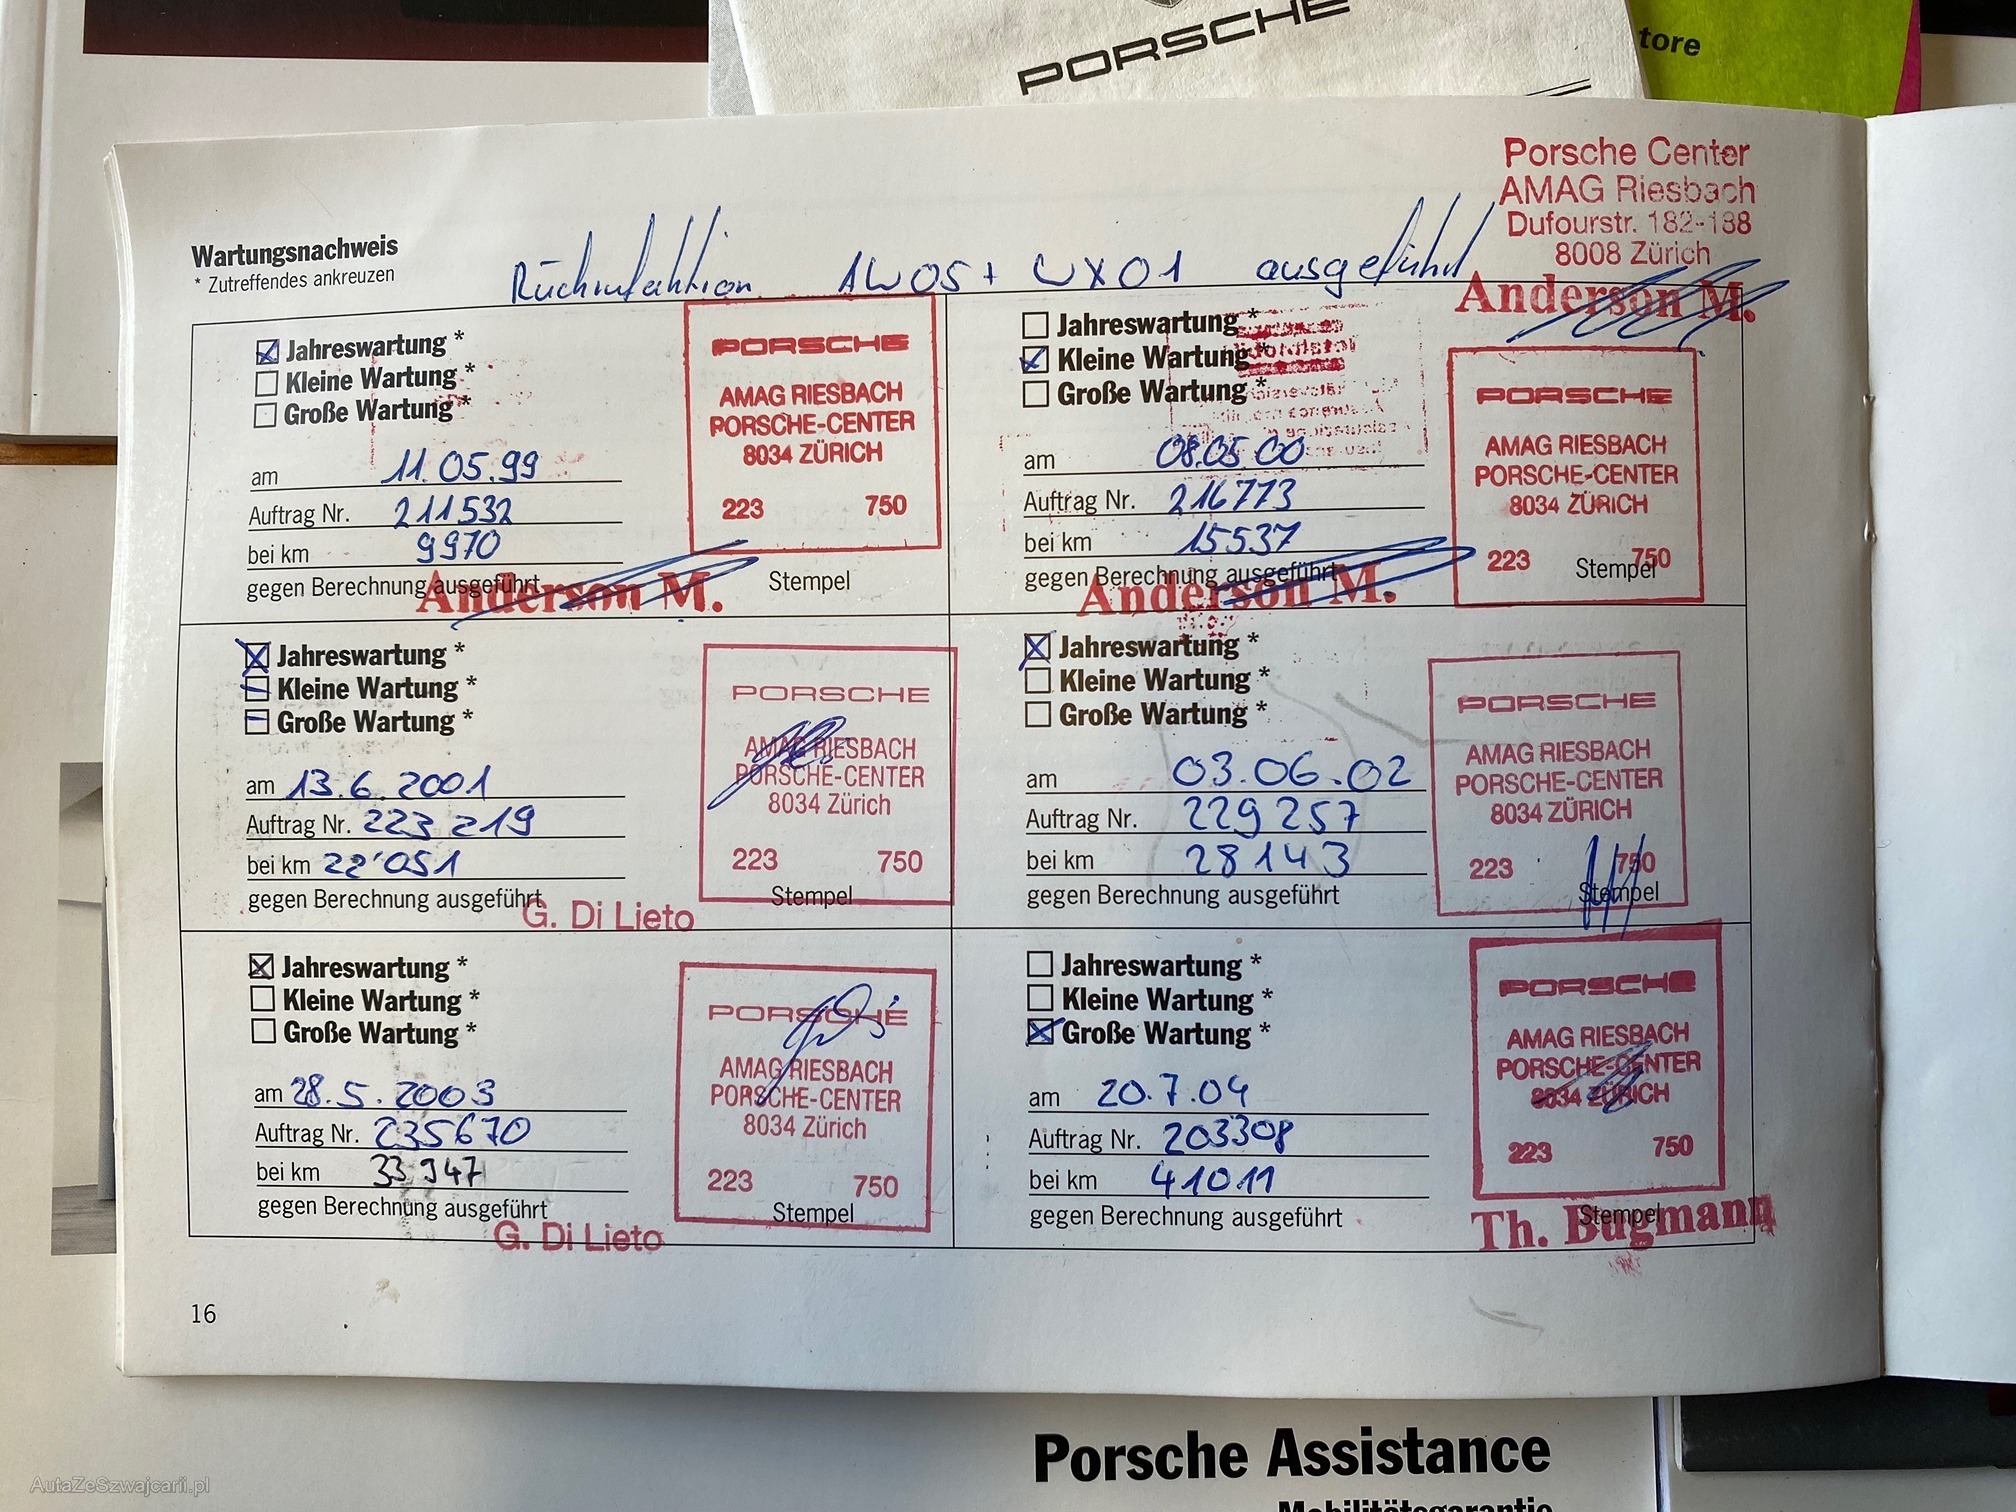 PORSCHE
tore
Porsche Center
AMAG Riesbach
Dufourstr. 182-188
8008 Zürich
Anderson M.
Wartungsnachweis
* Zutreffendes ankreuzen
Rückrufaktion 1W05 + WX01 ausgeführt
Jahreswartung *
Kleine Wartung *
Große Wartung *
am 11.05.99
Auftrag Nr. 211532
bei km 9970
gegen Berechnung ausgeführt
Anderson M.
PORSCHE
AMAG RIESBACH
PORSCHE-CENTER
8034 ZÜRICH
223 750
Stempel
Jahreswartung *
Kleine Wartung *
Große Wartung *
am 08.05.00
Auftrag Nr. 216773
bei km 15537
gegen Berechnung ausgeführt
Anderson M.
PORSCHE
AMAG RIESBACH
PORSCHE-CENTER
8034 ZÜRICH
223 750
Stempel
Jahreswartung *
Kleine Wartung *
Große Wartung *
am 13.6.2001
Auftrag Nr. 223 219
bei km 22'051
gegen Berechnung ausgeführt
G. Di Lieto
PORSCHE
AMAG RIESBACH
PORSCHE-CENTER
8034 Zürich
223 750
Stempel
Jahreswartung *
Kleine Wartung *
Große Wartung *
am 03.06.02
Auftrag Nr. 229257
bei km 28143
gegen Berechnung ausgeführt
PORSCHE
AMAG RIESBACH
PORSCHE-CENTER
8034 ZÜRICH
223 750
Stempel
Jahreswartung *
Kleine Wartung *
Große Wartung *
am 28.5.2003
Auftrag Nr. 235670
bei km 33947
gegen Berechnung ausgeführt
G. Di Lieto
PORSCHE
AMAG RIESBACH
PORSCHE-CENTER
8034 Zürich
223 750
Stempel
Jahreswartung *
Kleine Wartung *
Große Wartung *
am 20.7.04
Auftrag Nr. 203308
bei km 41011
gegen Berechnung ausgeführt
PORSCHE
AMAG RIESBACH
PORSCHE-CENTER
8034 ZÜRICH
223 750
Stempel
Th. Bugmann
16
Porsche Assistance
Mobilitätsgarantie
AutaZeSzwajcarii.pl